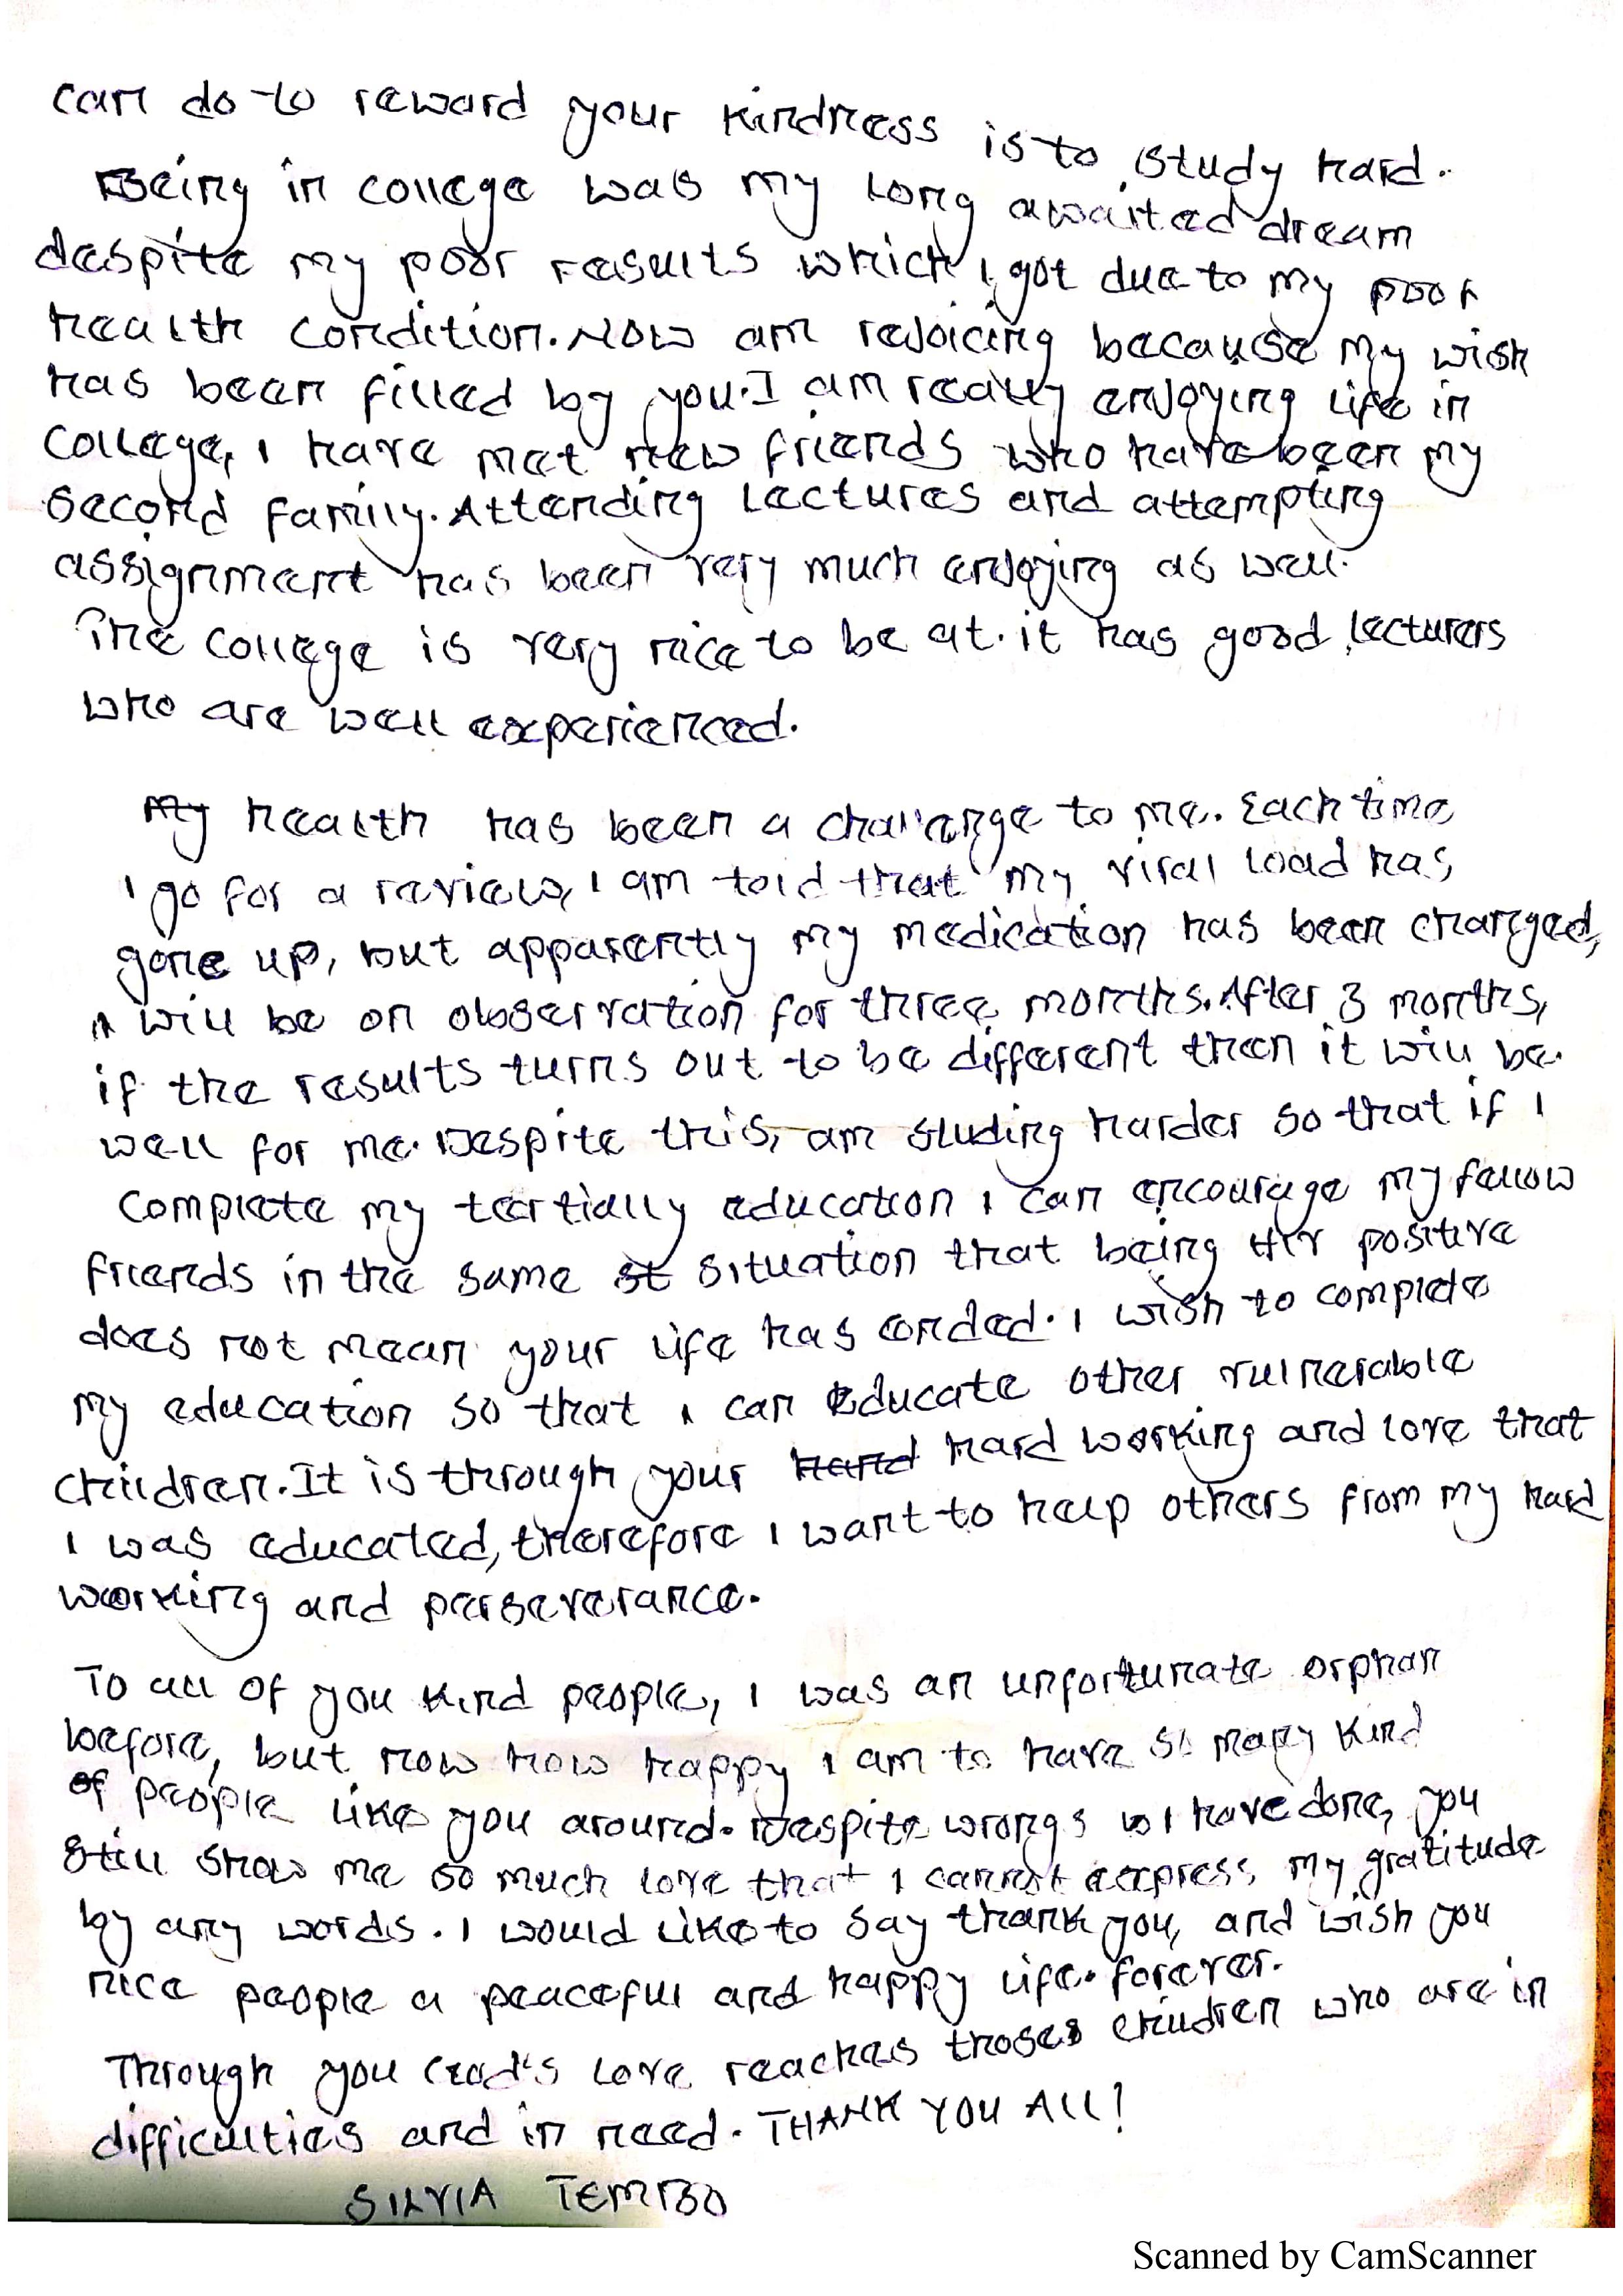 can do to reward your kindness is to study hard.
Being in college was my long awaited dream
despite my poor results which I got due to my poor
health condition. Now am rejoicing because my wish
has been filled by you. I am really enjoying life in
college, I have met new friends who have been my
second family. Attending lectures and attempting
assignment has been very much enjoying as well.
The college is very nice to be at. it has good lecturers
who are well experienced.
My health has been a challenge to me. Each time
I go for a review, I am told that my viral load has
gone up, but apparently my medication has been changed,
I will be on observation for three months. After 3 months,
if the results turns out to be different then it will be
well for me. Despite this, am studing harder so that if I
complete my tertially education I can encourage my fellow
friends in the same st situation that being HIV positive
does not mean your life has ended. I wish to complete
my education so that I can educate other vulnerable
children. It is through your hard hard working and love that
I was educated, therefore I want to help others from my hard
working and perseverance.
To all of you kind people, I was an unfortunate orphan
before, but now how happy I am to have so many kind
of people like you around. Despite wrongs I have done, you
still show me so much love that I cannot express my gratitude
by any words. I would like to say thank you, and wish you
nice people a peaceful and happy life. forever.
Through you God's love reaches thoses children who are in
difficulties and in need. THANK YOU ALL!
SILVIA TEMBO
Scanned by CamScanner